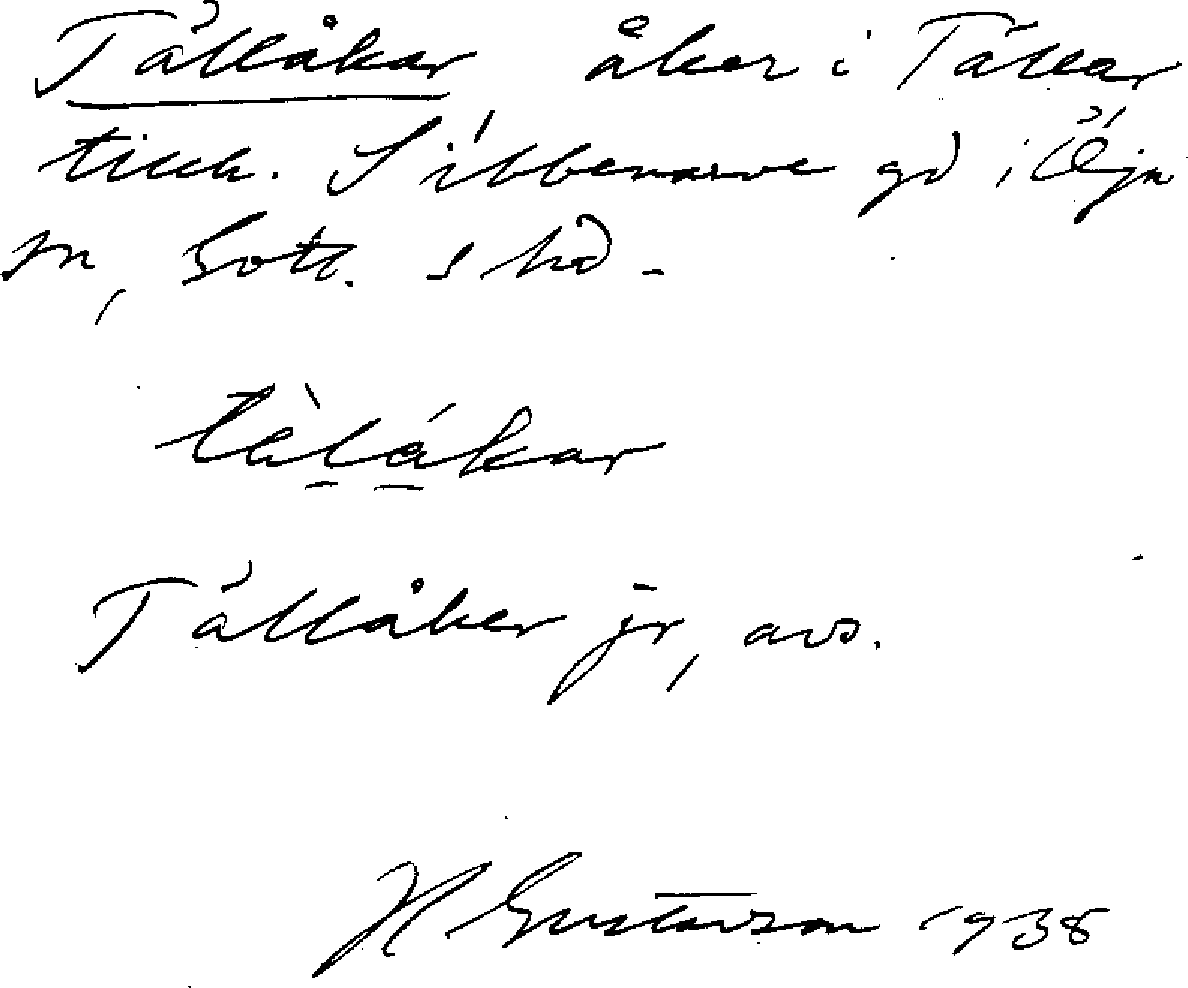 Tällåkar åker i Tällar
tillh. Sibbenarve gd i Öja
sn, Gotl. s hd.
tàlákar
Tällåker jr, avs.
H Gustavson 1938